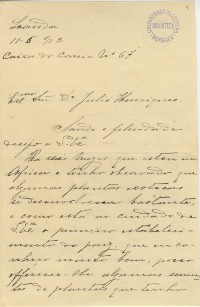 Loanda
11-5-902
Caixa do Correio Nº 67
Exmo Snr Dr Julio Henriques
Saude e felicidade
desejo a V. Exª
Ha mais que estou em
Africa e tenho observado que
algumas plantas
se desenvolvem bastante,
e como está na cidade de
o primeiro estabeleci-
mento do paiz, que eu co-
nheço muito bem, posso
offerecer-lhe algumas
de plantas que tenho